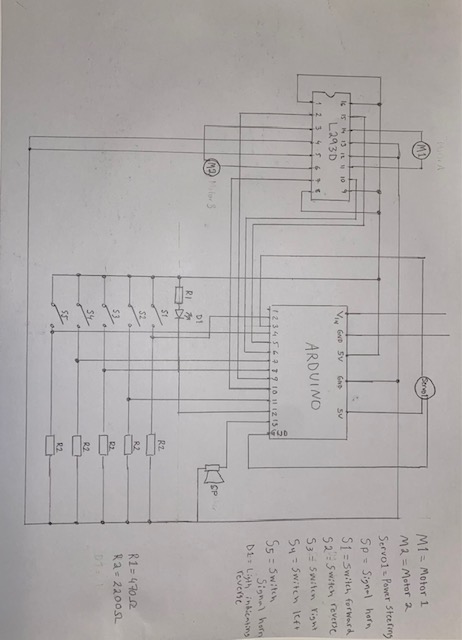 Motor A
M1
Servo1
16 15 14 13 12 11 10 9
L293D
1 2 3 4 5 6 7 8
Vin GND 5V GND 5V
ARDUINO
1 2 3 4 5 6 7 8 9 10 11 12 13 GND
M2 Motor B
SP
D1
R1
S1 R2
S2 R2
S3 R2
S4 R2
S5 R2
M1 = Motor 1
M2 = Motor 2
Servo1 = Power steering
Sp = Signal horn
S1 = Switch forward
S2 = Switch reverse
S3 = Switch right
S4 = Switch left
S5 = Switch
Signal horn
D1 = Ligth indicating
reverse
R1 = 470Ω
R2 = 2200Ω